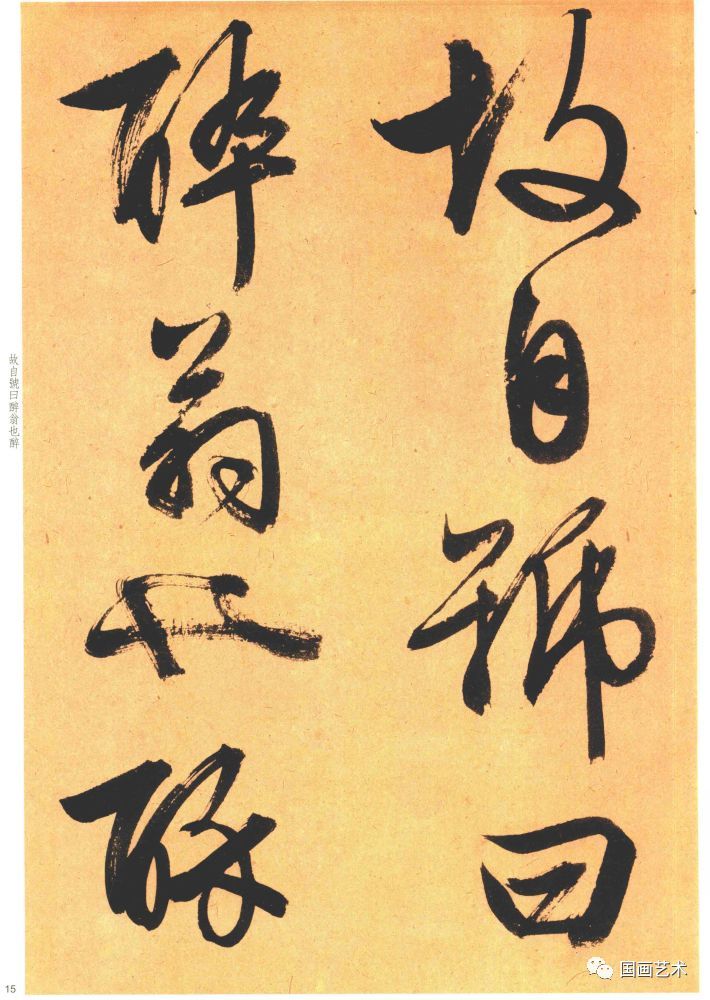 故自號曰
醉翁也醉
故自號曰醉翁也醉
15
国画艺术